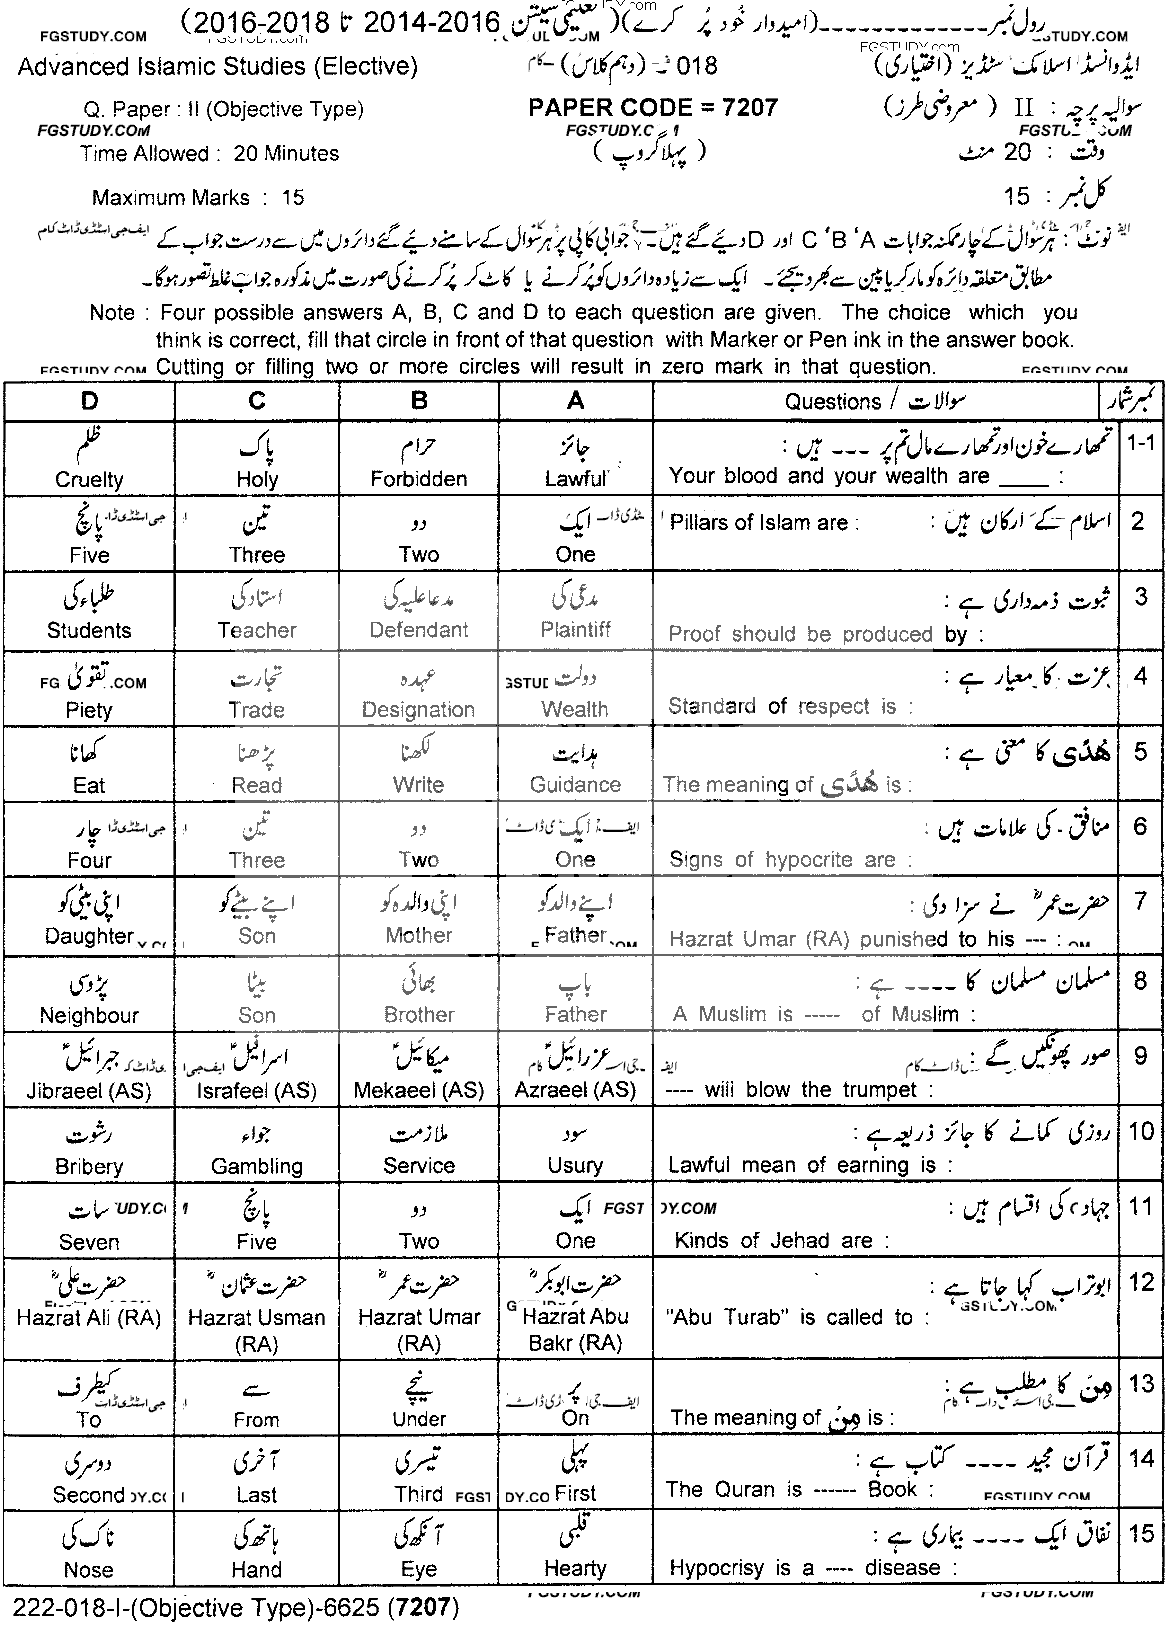 رول نمبر-------------(امیدوار خود پُر کرے)(تعلیمی سیشن 2014-2016 تا 2016-2018)
FGSTUDY.COM
Advanced Islamic Studies (Elective) 018 – (دہم کلاس) ایڈوانسڈ اسلامک سٹڈیز (اختیاری)
Q. Paper : II (Objective Type) PAPER CODE = 7207 سوالیہ پرچہ : II ( معروضی طرز)
FGSTUDY.COM
Time Allowed : 20 Minutes ( پہلا گروپ ) وقت : 20 منٹ
Maximum Marks : 15 کل نمبر : 15
نوٹ : ہر سوال کے چار ممکنہ جوابات A ، B ، C اور D دیے گئے ہیں۔ جوابی کاپی پر ہر سوال کے سامنے دیے گئے دائروں میں سے درست جواب کے
مطابق متعلقہ دائرہ کو مارکر یا پین سے بھر دیجئے۔ ایک سے زیادہ دائروں کو پُر کرنے یا کاٹ کر پُر کرنے کی صورت میں مذکورہ جواب غلط تصور ہوگا۔
Note : Four possible answers A, B, C and D to each question are given. The choice which you
think is correct, fill that circle in front of that question with Marker or Pen ink in the answer book.
Cutting or filling two or more circles will result in zero mark in that question.
FGSTUDY.COM
D C B A Questions / سوالات نمبر شمار
ظلم پاک حرام جائز تمھارے خون اور تمھارے مال تم پر --- ہیں : 1-1
Cruelty Holy Forbidden Lawful Your blood and your wealth are ____ :
پانچ تین دو ایک Pillars of Islam are : اسلام کے ارکان ہیں : 2
Five Three Two One
طلباء کی استاد کی مدعا علیہ کی مدعی کی ثبوت ذمہ داری ہے : 3
Students Teacher Defendant Plaintiff Proof should be produced by :
تقویٰ تجارت عہدہ دولت عزت کا معیار ہے : 4
Piety Trade Designation Wealth Standard of respect is :
کھانا پڑھنا لکھنا ہدایت ھُدًی کا معنی ہے : 5
Eat Read Write Guidance The meaning of ھُدًی is :
چار تین دو ایک منافق کی علامات ہیں : 6
Four Three Two One Signs of hypocrite are :
اپنی بیٹی کو اپنے بیٹے کو اپنی والدہ کو اپنے والد کو حضرت عمرؓ نے سزا دی : 7
Daughter Son Mother Father Hazrat Umar (RA) punished to his --- :
پڑوسی بیٹا بھائی باپ مسلمان مسلمان کا ---- ہے : 8
Neighbour Son Brother Father A Muslim is ----- of Muslim :
جبرائیلؑ اسرافیلؑ میکائیلؑ عزرائیلؑ صور پھونکیں گے : 9
Jibraeel (AS) Israfeel (AS) Mekaeel (AS) Azraeel (AS) ---- will blow the trumpet :
رشوت جواء ملازمت سود روزی کمانے کا جائز ذریعہ ہے : 10
Bribery Gambling Service Usury Lawful mean of earning is :
سات پانچ دو ایک جہاد کی اقسام ہیں : 11
Seven Five Two One Kinds of Jehad are :
حضرت علیؓ حضرت عثمانؓ حضرت عمرؓ حضرت ابوبکرؓ ابوتراب کہا جاتا ہے : 12
Hazrat Ali (RA) Hazrat Usman (RA) Hazrat Umar (RA) Hazrat Abu Bakr (RA) "Abu Turab" is called to :
کیطرف سے نیچے پر مِنْ کا مطلب ہے : 13
To From Under On The meaning of مِنْ is :
دوسری آخری تیسری پہلی قرآن مجید ---- کتاب ہے : 14
Second Last Third First The Quran is ------ Book :
FGSTUDY.COM
ناک کی ہاتھ کی آنکھ کی قلبی نفاق ایک ---- بیماری ہے : 15
Nose Hand Eye Hearty Hypocrisy is a ---- disease :
222-018-I-(Objective Type)-6625 (7207)